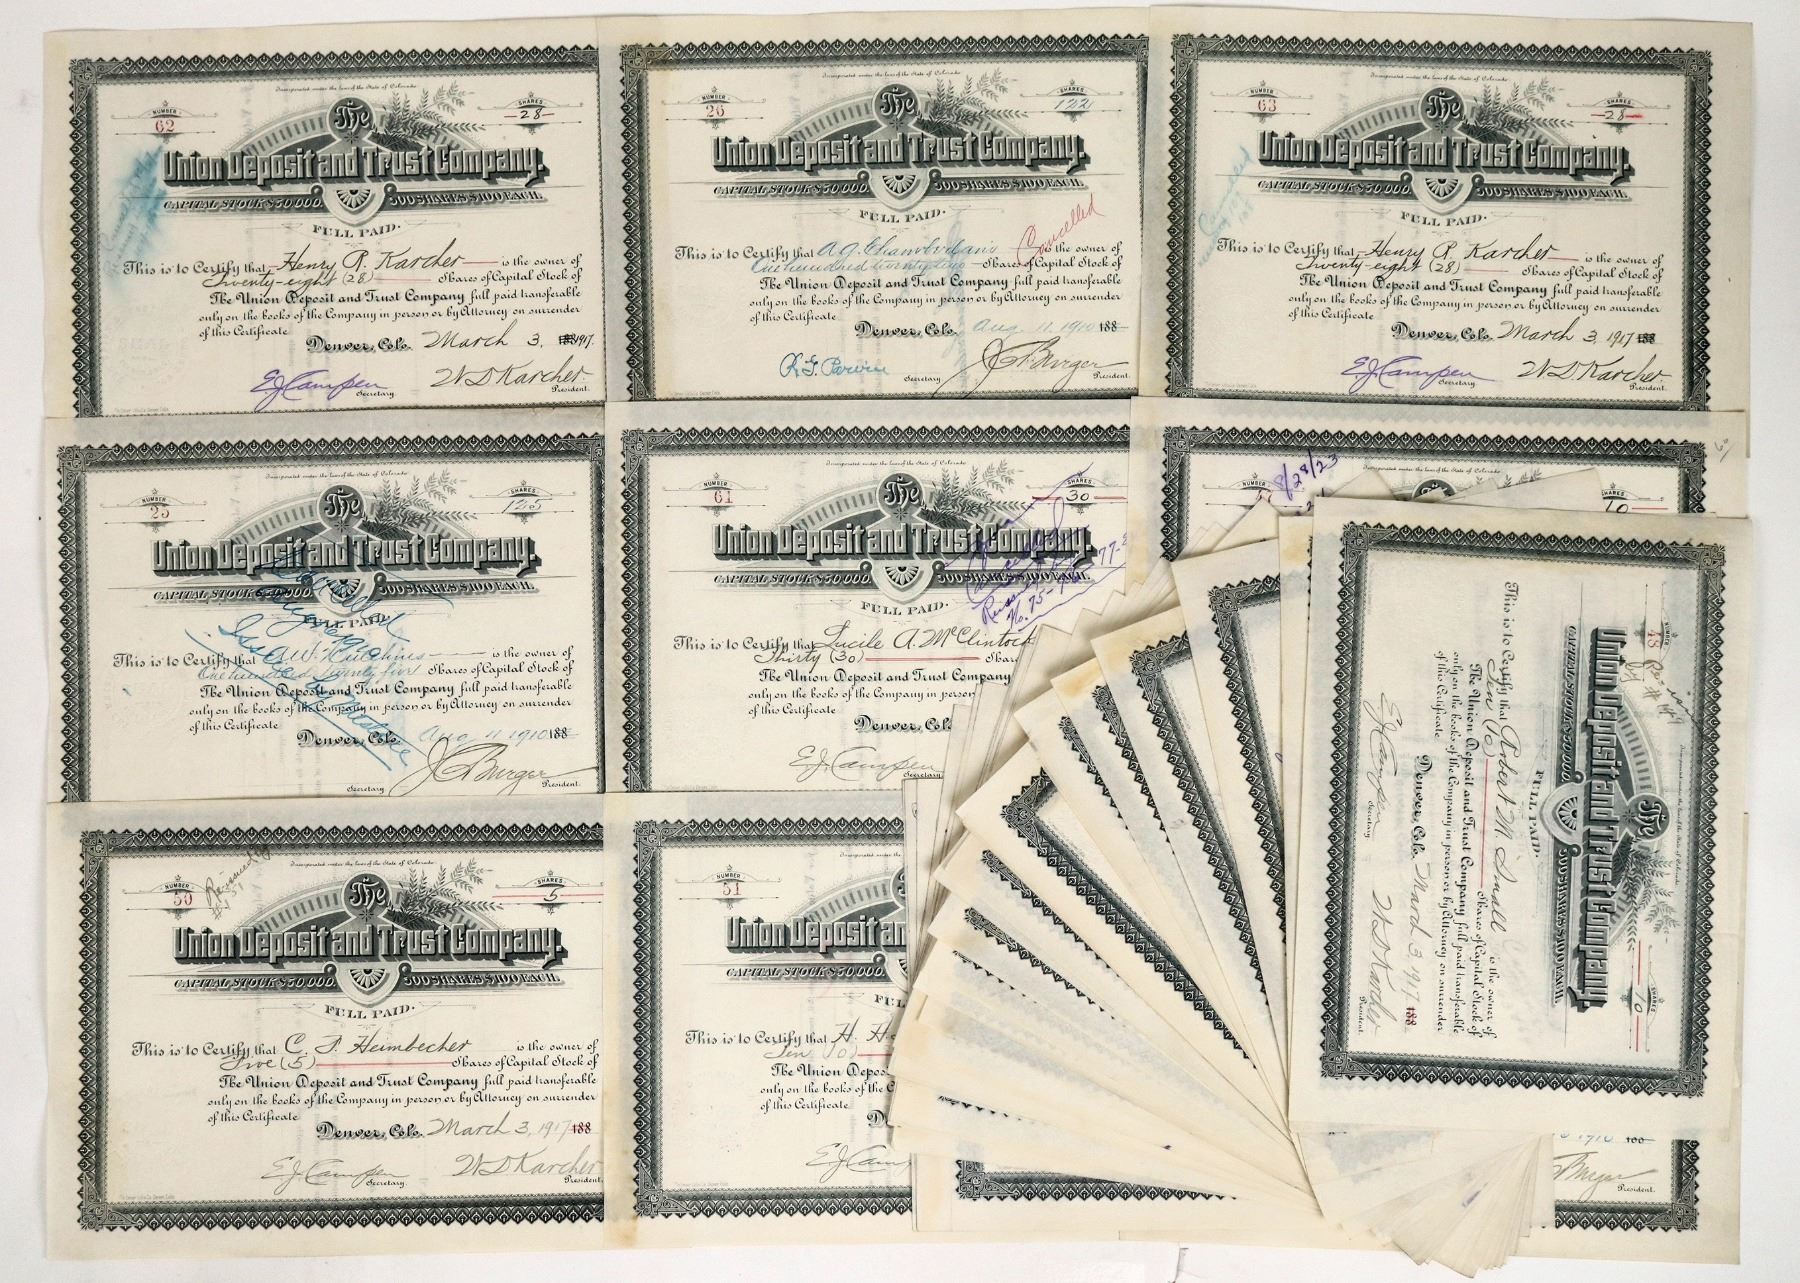 Incorporated under the laws of the State of Colorado
NUMBER 62
SHARES 28
The
Union Deposit and Trust Company.
CAPITAL STOCK $50,000. 500 SHARES $100 EACH.
FULL PAID.
This is to Certify that Henry R. Karcher is the owner of
Twenty-eight (28) Shares of Capital Stock of
The Union Deposit and Trust Company full paid transferable
only on the books of the Company in person or by Attorney on surrender
of this Certificate
Denver, Colo. March 3, 1917.
E J Campen W D Karcher
Secretary. President.
Incorporated under the laws of the State of Colorado
NUMBER 26
SHARES 122
The
Union Deposit and Trust Company.
CAPITAL STOCK $50,000. 500 SHARES $100 EACH.
FULL PAID.
Cancelled
This is to Certify that A. G. Chamberlain is the owner of
One hundred twenty two Shares of Capital Stock of
The Union Deposit and Trust Company full paid transferable
only on the books of the Company in person or by Attorney on surrender
of this Certificate
Denver, Colo. Aug. 11. 1910 188
Secretary President.
Incorporated under the laws of the State of Colorado
NUMBER 63
SHARES 28
The
Union Deposit and Trust Company.
CAPITAL STOCK $50,000. 500 SHARES $100 EACH.
FULL PAID.
This is to Certify that Henry R. Karcher is the owner of
Twenty-eight (28) Shares of Capital Stock of
The Union Deposit and Trust Company full paid transferable
only on the books of the Company in person or by Attorney on surrender
of this Certificate
Denver, Colo. March 3, 1917 188
E J Campen W D Karcher
Secretary. President.
Incorporated under the laws of the State of Colorado
NUMBER 25
SHARES 125
The
Union Deposit and Trust Company.
CAPITAL STOCK $50,000. 500 SHARES $100 EACH.
FULL PAID.
This is to Certify that is the owner of
One hundred twenty five Shares of Capital Stock of
The Union Deposit and Trust Company full paid transferable
only on the books of the Company in person or by Attorney on surrender
of this Certificate
Denver, Colo. Aug 11 1910 188
J C Burger
Secretary President.
Incorporated under the laws of the State of Colorado
NUMBER 61
SHARES 30
The
Union Deposit and Trust Company.
CAPITAL STOCK $50,000. 500 SHARES $100 EACH.
FULL PAID.
This is to Certify that Lucile A. McClintock
Thirty (30) Shar
The Union Deposit and Trust Company
only on the books of the Company in person
of this Certificate
Denver, Col
E. J. Campen
Secretary
8/28/23
Incorporated under the laws of the State of Colorado
SHARES 10
NUMBER 48
SHARES 10
The
Union Deposit and Trust Company.
CAPITAL STOCK $50,000. 500 SHARES $100 EACH.
FULL PAID.
This is to Certify that Robert M. Small is the owner of
Ten (10) Shares of Capital Stock of
The Union Deposit and Trust Company full paid transferable
only on the books of the Company in person or by Attorney on surrender
of this Certificate
Denver, Colo. March 3, 1917 188
E J Campen W D Karcher
Secretary. President.
Incorporated under the laws of the State of Colorado
NUMBER 50
SHARES 5
The
Union Deposit and Trust Company.
CAPITAL STOCK $50,000. 500 SHARES $100 EACH.
FULL PAID.
This is to Certify that C. P. Heimbecher is the owner of
Five (5) Shares of Capital Stock of
The Union Deposit and Trust Company full paid transferable
only on the books of the Company in person or by Attorney on surrender
of this Certificate
Denver, Colo. March 3, 1917 188
E J Campen W D Karcher
Secretary. President.
Incorporated under the laws
NUMBER 51
The
Union Deposit an
CAPITAL STOCK $50,000.
FUL
This is to Certify that H. H
Ten (10)
The Union Depos
only on the books of the C
of this Certificate
D
E J Camp
1910
President.